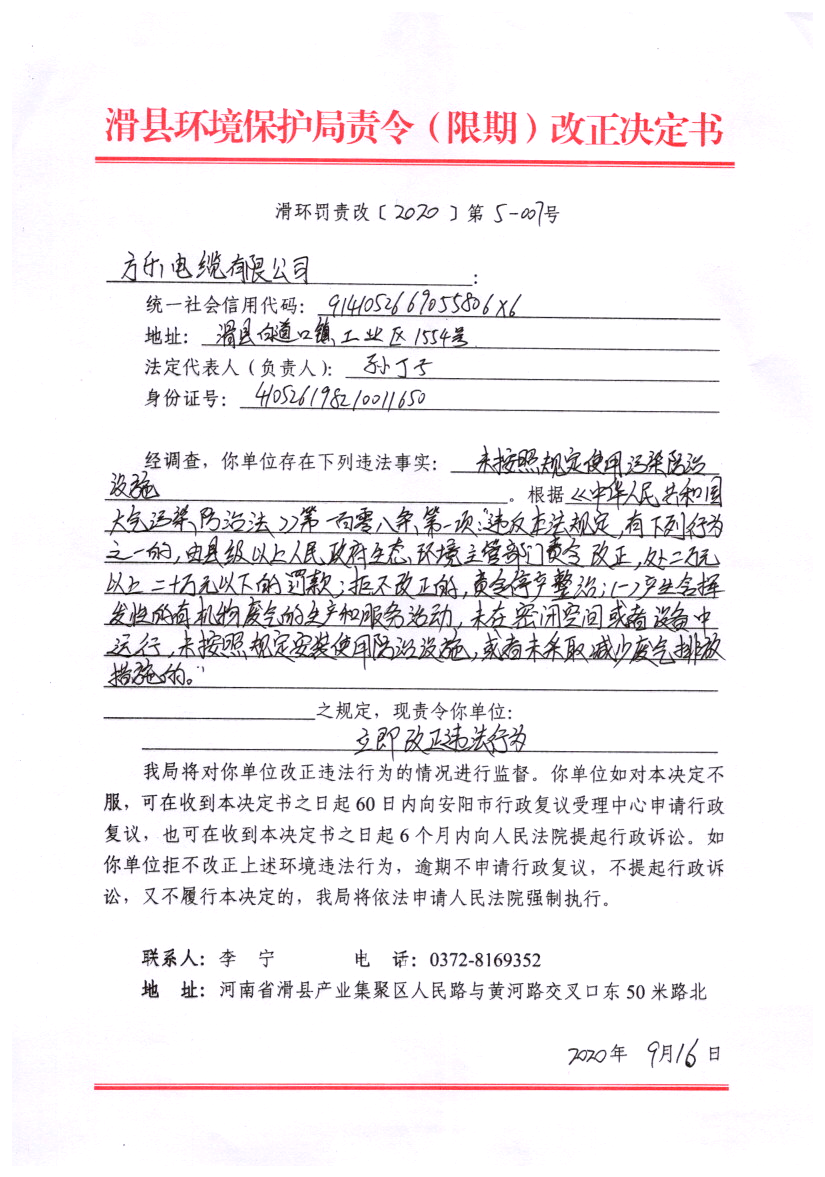 滑县环境保护局责令（限期）改正决定书
滑环罚责改〔2020〕第 5-007号
方乐电缆有限公司：
统一社会信用代码：9141052669055806X6
地址：滑县白道口镇工业区1554号
法定代表人（负责人）：孙丁子
身份证号：410526198210011650
经调查，你单位存在下列违法事实：未按照规定使用污染防治
设施。根据《中华人民共和国
大气污染防治法》第一百零八条第一项：“违反本法规定，有下列行为
之一的，由县级以上人民政府生态环境主管部门责令改正，处二万元
以上二十万元以下的罚款；拒不改正的，责令停产整治：(一)产生含挥
发性的有机物废气的生产和服务活动，未在密闭空间或者设备中
运行，未按照规定安装使用防治设施，或者未采取减少废气排放
措施的。”
之规定，现责令你单位：
立即改正违法行为
我局将对你单位改正违法行为的情况进行监督。你单位如对本决定不
服，可在收到本决定书之日起60日内向安阳市行政复议受理中心申请行政
复议，也可在收到本决定书之日起6个月内向人民法院提起行政诉讼。如
你单位拒不改正上述环境违法行为，逾期不申请行政复议，不提起行政诉
讼，又不履行本决定的，我局将依法申请人民法院强制执行。
联系人：李 宁 电 话：0372-8169352
地 址：河南省滑县产业集聚区人民路与黄河路交叉口东50米路北
2020年 9月16日